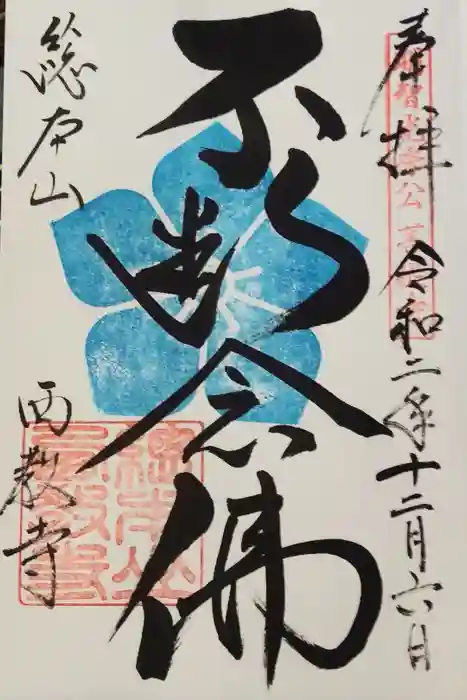 奉拝 令和二年十二月六日
不断念佛
総本山
西教寺